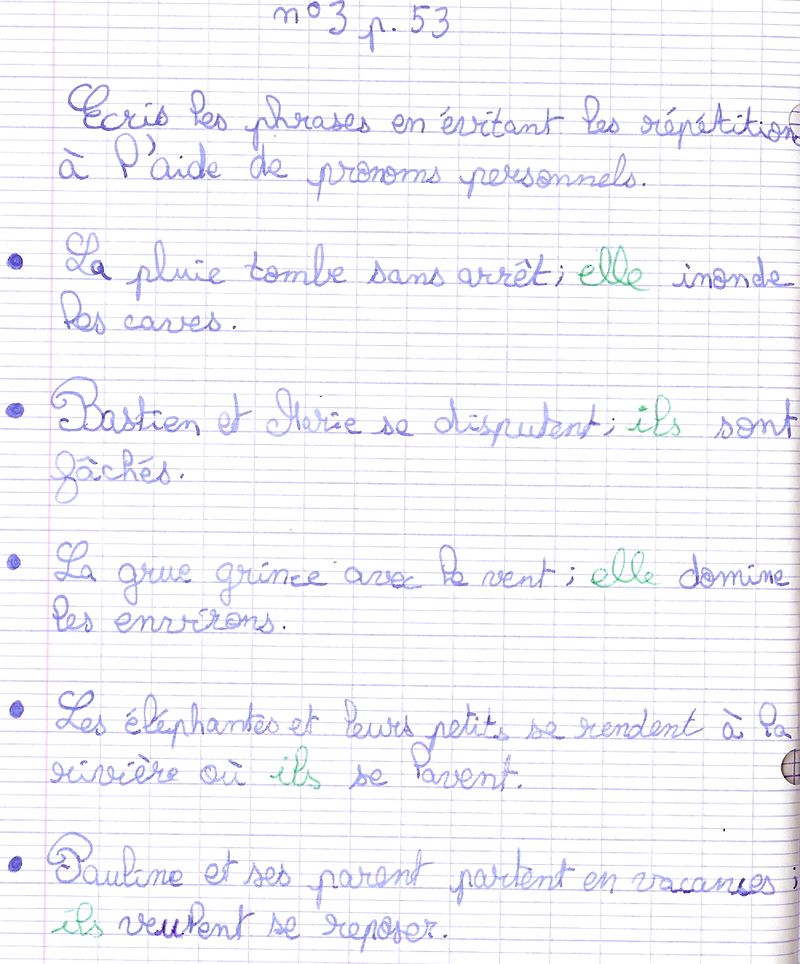 n°3 p. 53
Ecris les phrases en évitant les répétitions
à l'aide de pronoms personnels.
La pluie tombe sans arrêt; elle inonde
les caves.
Bastien et Marie se disputent; ils sont
fâchés.
La grue grince avec le vent; elle domine
les environs.
Les éléphantes et leurs petits se rendent à la
rivière où ils se lavent.
Pauline et ses parent partent en vacances;
ils veulent se reposer.